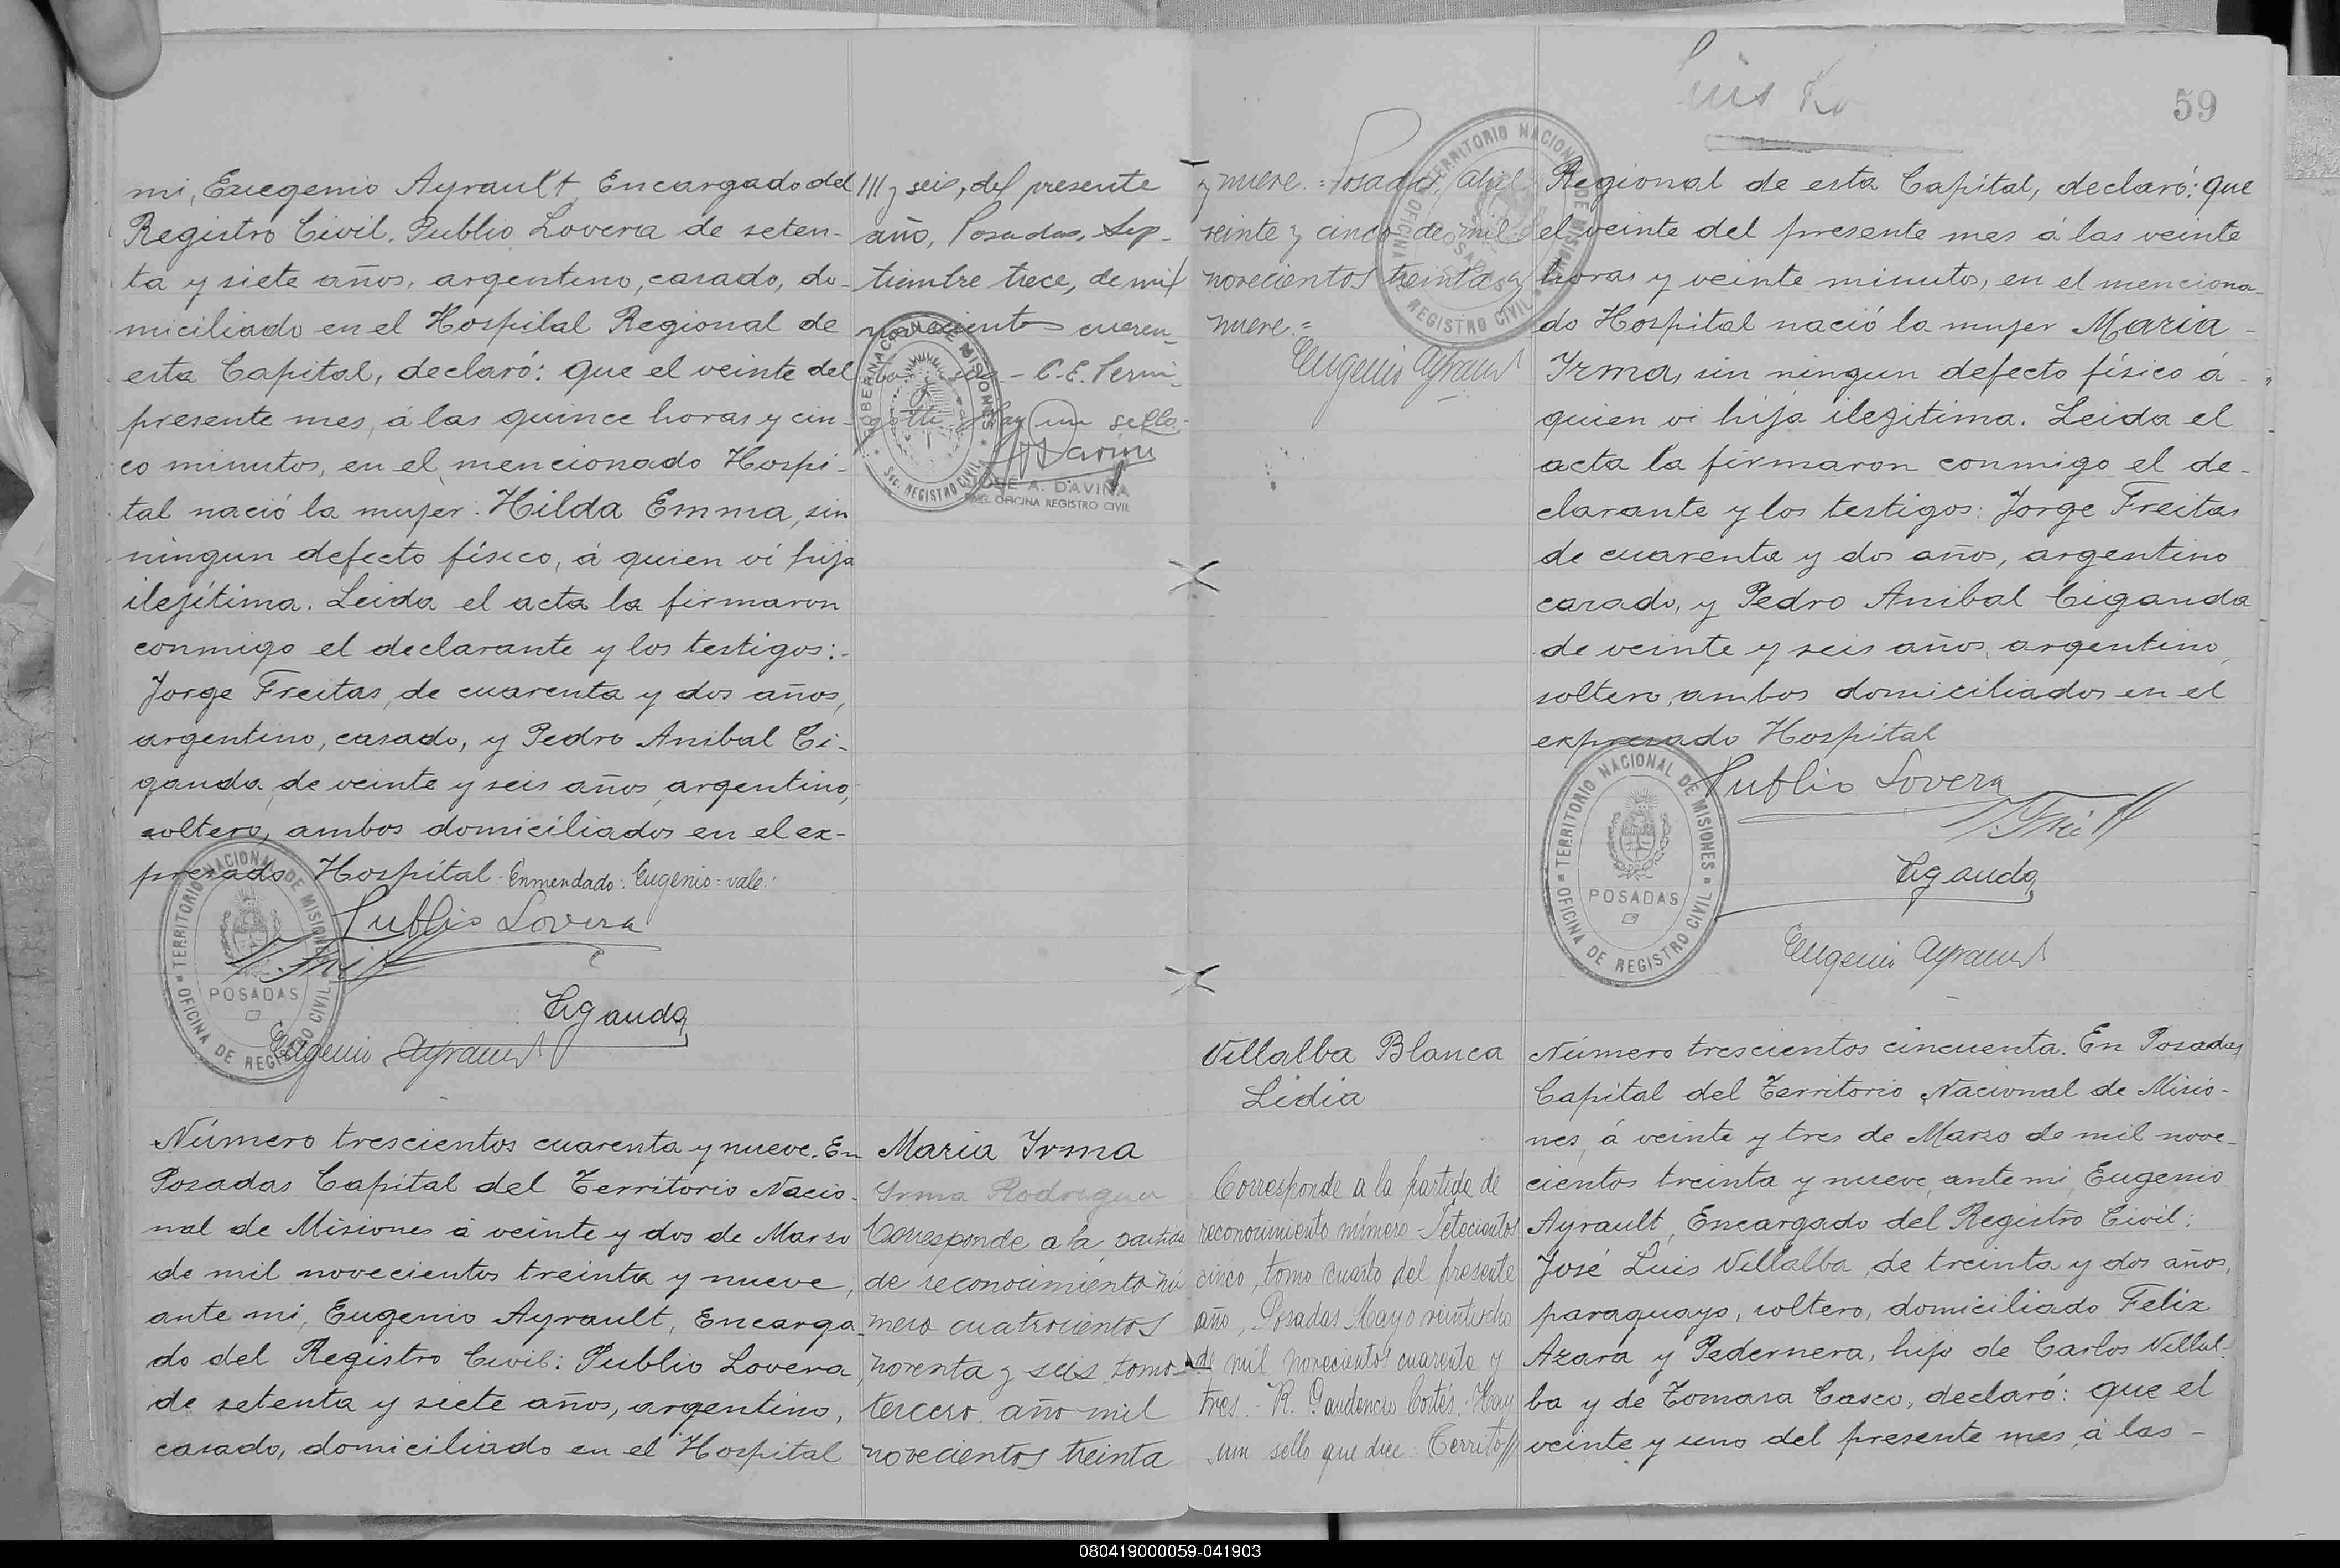 mi, Euegenio Ayrault, Encargado del
Registro Civil. Publio Lovera de seten-
ta y siete años, argentino, casado, do-
miciliado en el Hospital Regional de
esta Capital, declaró: que el veinte del
presente mes, á las quince horas y cin-
co minutos, en el mencionado Hospi-
tal nació la mujer: Hilda Emma, sin
ningun defecto físico, á quien ví hija
ilejítima. Leida el acta la firmaron
conmigo el declarante y los testigos:-
Jorge Freitas, de cuarenta y dos años,
argentino, casado, y Pedro Anibal Ci-
ganda, de veinte y seis años, argentino,
soltero, ambos domiciliados en el ex-
presado Hospital. Enmendado: Eugenio = vale.
Publio Lovera
Ciganda
Eugenio Ayrault
TERRITORIO NACIONAL DE MISIONES
POSADAS
OFICINA DE REGISTRO CIVIL
Número trescientos cuarenta y nueve. En
Posadas Capital del Territorio Nacio-
nal de Misiones á veinte y dos de Marzo
de mil novecientos treinta y nueve,
ante mi, Eugenio Ayrault, Encarga-
do del Registro Civil: Publio Lovera
de setenta y siete años, argentino,
casado, domiciliado en el Hospital
/// y seis, del presente
año, Posadas, Sep-
tiembre trece, de mil
novecientos cuaren-
Hay un sello-
GOBERNACION DE MISIONES
SEC. REGISTRO CIVIL
JOSÉ A. DAVIÑA
ENC. OFICINA REGISTRO CIVIL
Maria Irma
Irma Rodriguez
Corresponde a la partida
de reconocimiento nú
mero cuatrocientos
noventa y seis tomo
tercero año mil
novecientos treinta
y nueve. = Posadas, Abril
veinte y cinco de mil
novecientos treinta y
nueve. =
Eugenio Ayrault
TERRITORIO NACIONAL DE MISIONES
POSADAS
OFICINA DE REGISTRO CIVIL
Villalba Blanca
Lidia
Corresponde a la partida de
reconocimiento número - Setecientos
cinco, tomo cuarto del presente
año, Posadas Mayo veintiocho
de mil novecientos cuarenta y
tres. - R. Gaudencio Cortés. Hay
un sello que dice: Territo//
59
Regional de esta Capital, declaró: que
el veinte del presente mes á las veinte
horas y veinte minutos, en el menciona-
do Hospital nació la mujer Maria -
Irma, sin ningun defecto físico á -
quien vi hija ilegitima. Leida el
acta la firmaron conmigo el de-
clarante y los testigos: Jorge Freitas
de cuarenta y dos años, argentino
casado, y Pedro Anibal Ciganda
de veinte y seis años, argentino,
soltero, ambos domiciliados en el
expresado Hospital
Publio Lovera
Ciganda
Eugenio Ayrault
TERRITORIO NACIONAL DE MISIONES
POSADAS
OFICINA DE REGISTRO CIVIL
Número trescientos cincuenta. En Posadas,
Capital del Territorio Nacional de Misio-
nes, á veinte y tres de Marzo de mil nove-
cientos treinta y nueve, ante mi, Eugenio
Ayrault, Encargado del Registro Civil:
José Luis Villalba, de treinta y dos años,
paraguayo, soltero, domiciliado Felix
Azara y Pedernera, hijo de Carlos Villal-
ba y de Tomasa Casco, declaró: que el
veinte y uno del presente mes, á las -
080419000059-041903